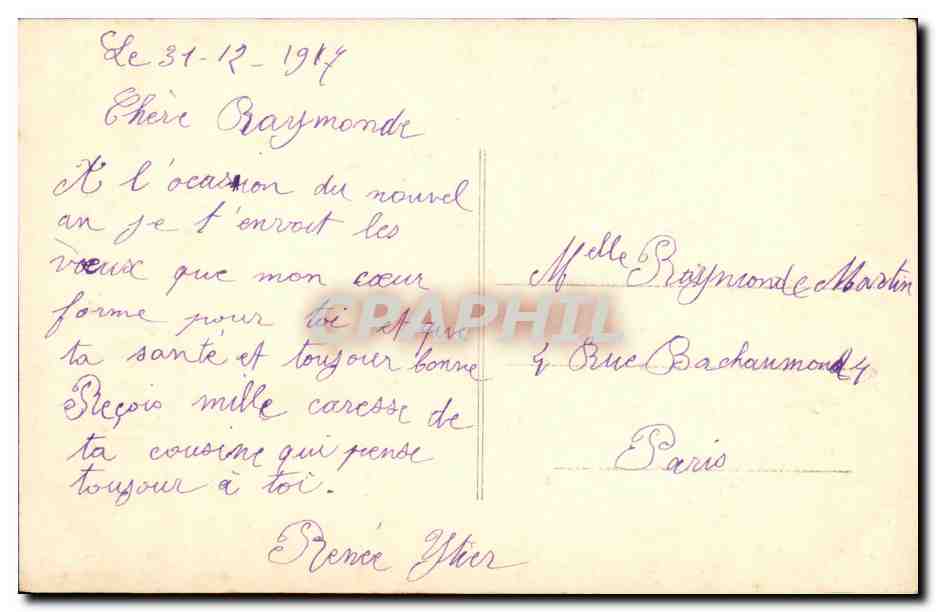 Le 31-12-1917
Chère Raymonde
A l'ocasion du nouvel
an je t'envoit les
vœux que mon cœur
forme pour toi et que
ta santé et toujour bonne
Reçois mille caresse de
ta cousine qui pense
toujour à toi.
Renée
Melle Raymonde Martin
4 Rue Bachaumond 4
Paris
CPAPHIL